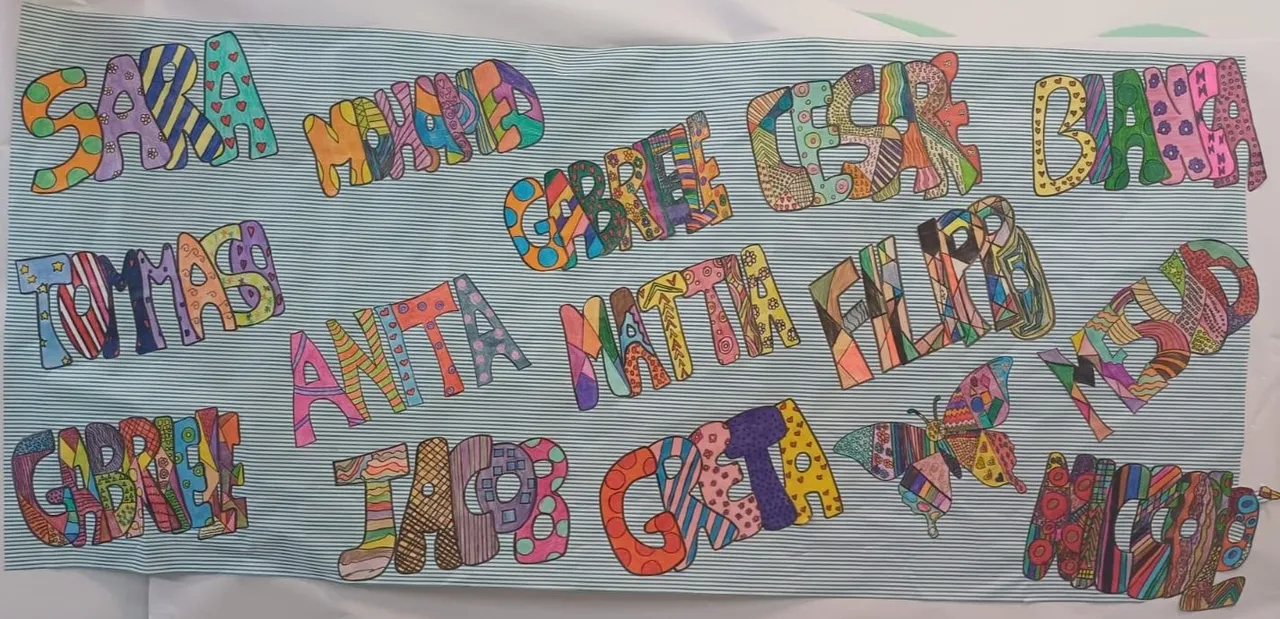 SARA
MOHAMED
GABRIELE
CESARE
BIANCA
TOMMASO
ANITA
MATTIA
FILIPPO
GABRIELE
JACOB
GRETA